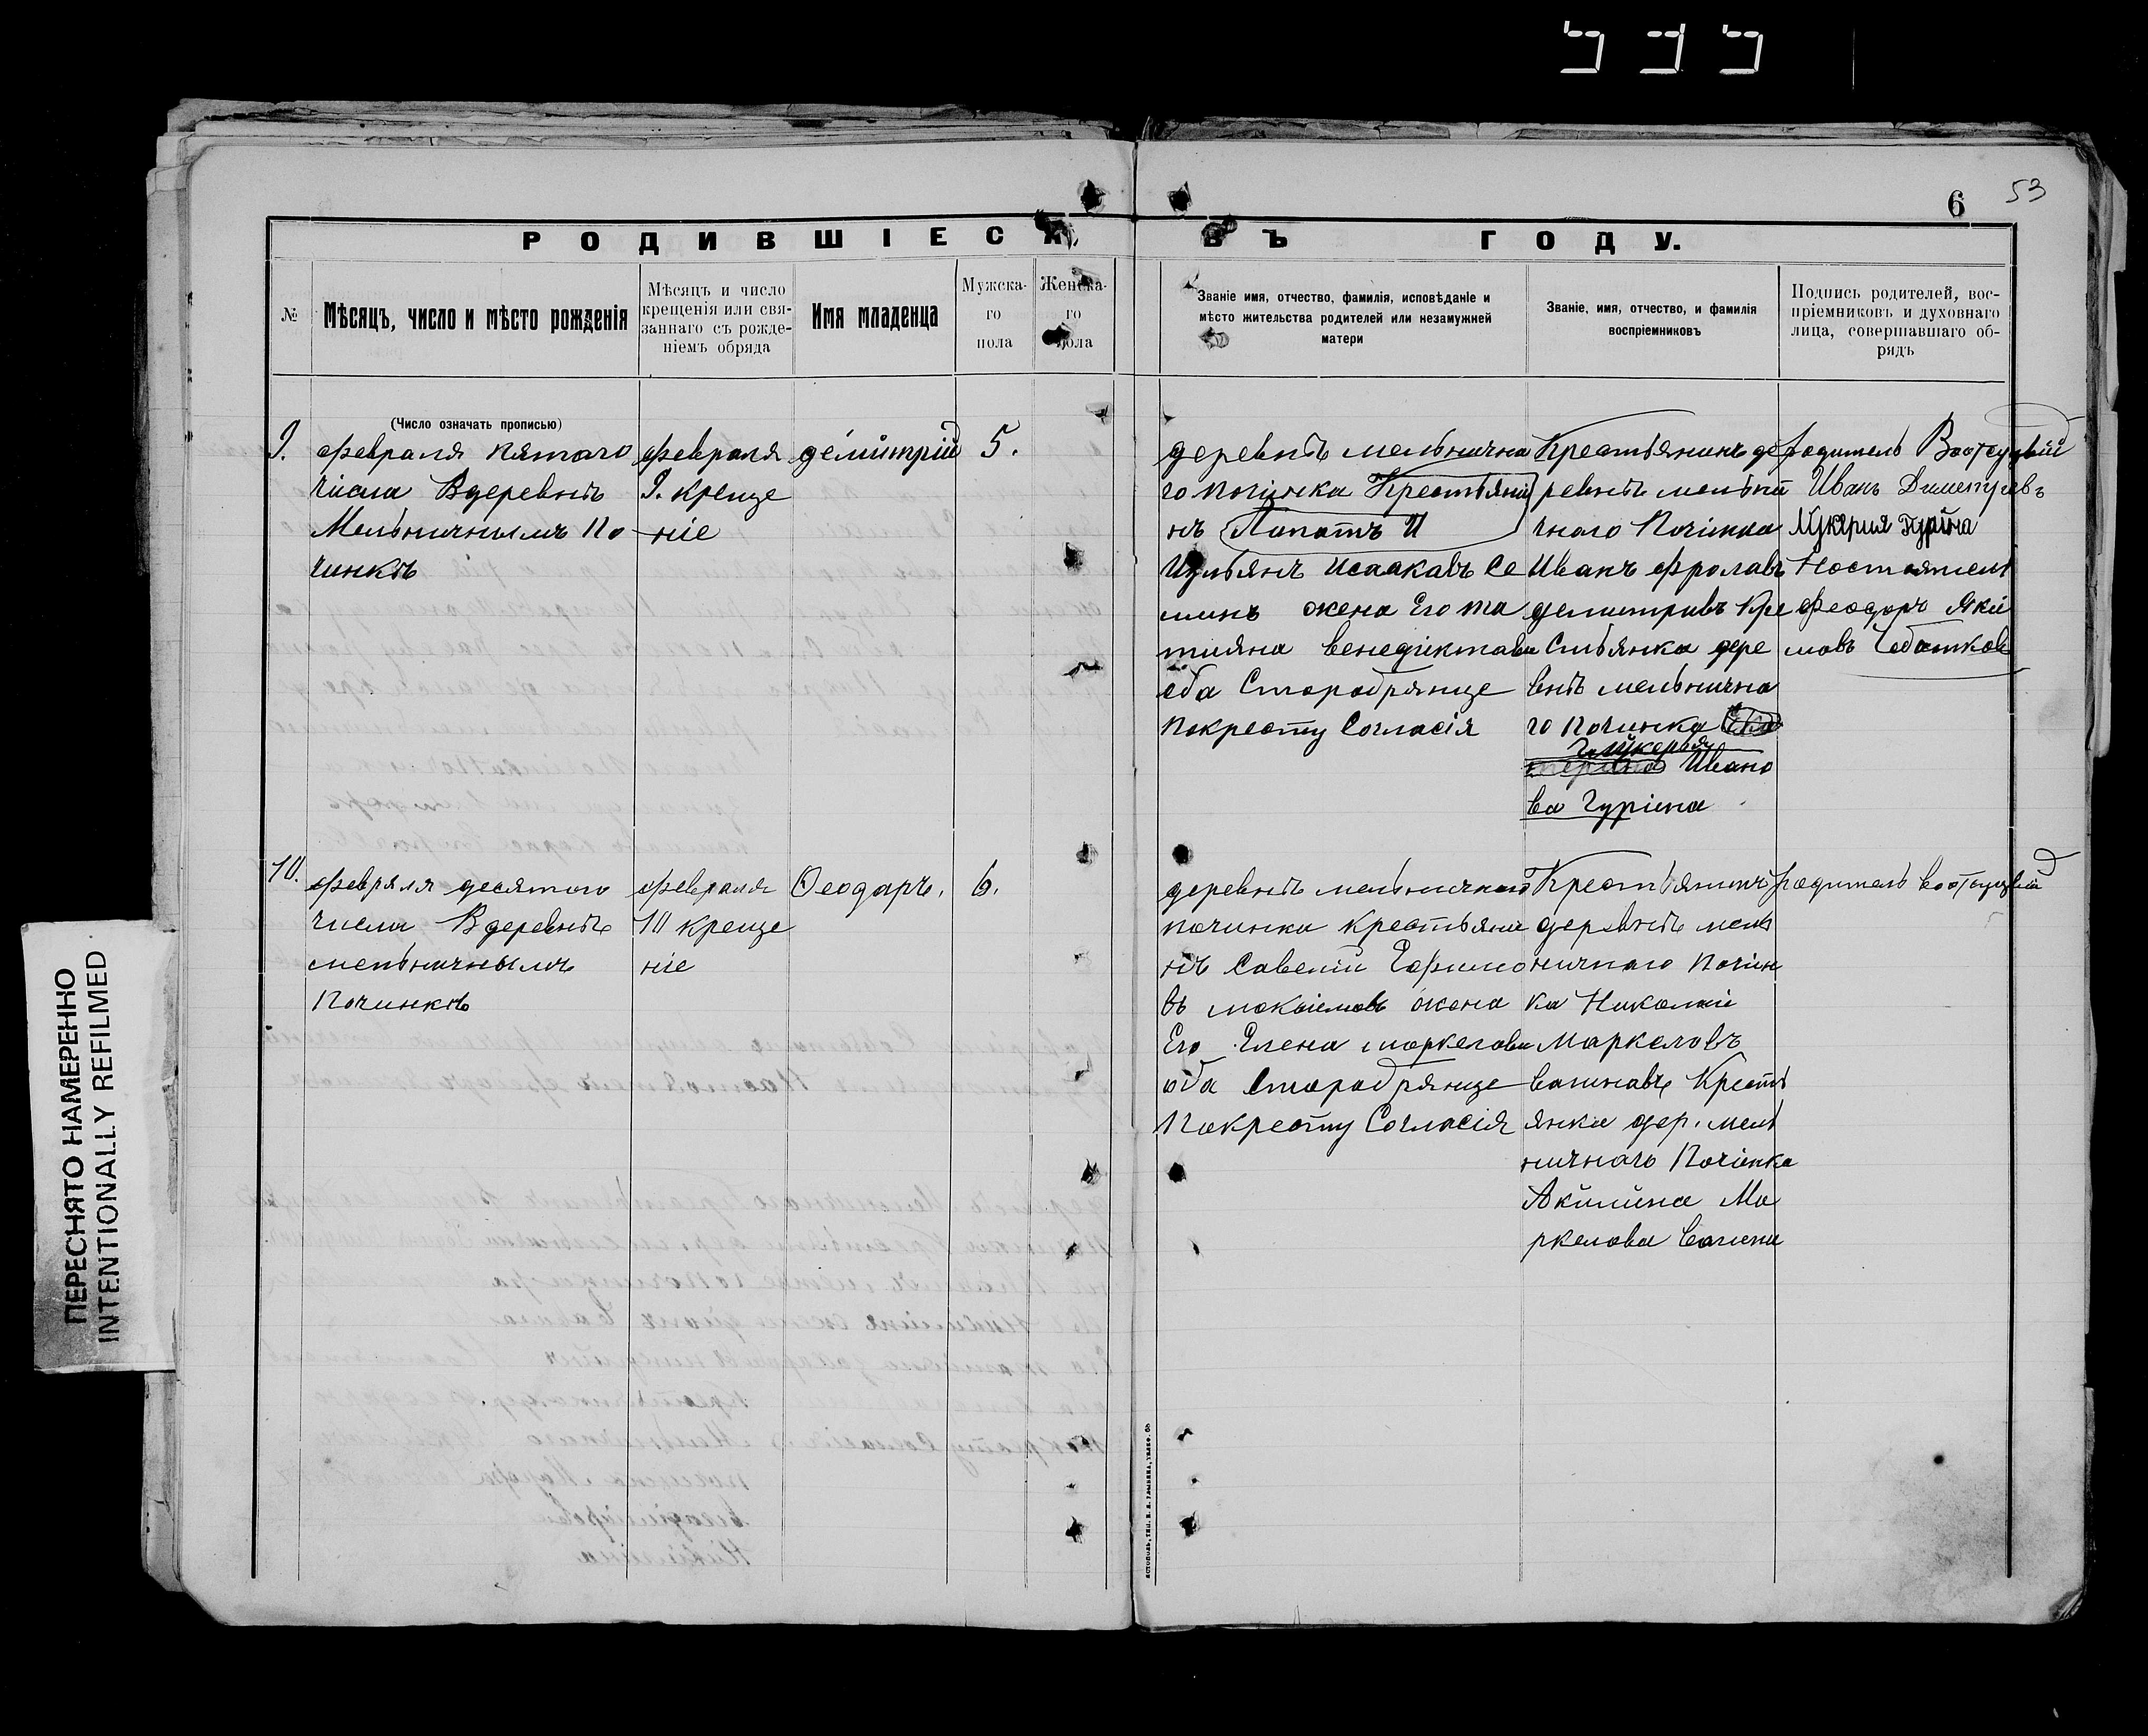 6 53
РОДИВШІЕСЯ ВЪ ГОДУ.
№
Мѣсяцъ, число и мѣсто рожденія
Мѣсяцъ и число
крещенія или свя-
заннаго съ рожде-
ніемъ обряда
Имя младенца
Мужска-
го
пола
Женска-
го
пола
Званіе имя, отчество, фамилія, исповѣданіе и
мѣсто жительства родителей или незамужней
матери
Званіе, имя, отчество, и фамилія
воспріемниковъ
Подпись родителей, вос-
пріемниковъ и духовнаго
лица, совершавшаго об-
рядъ
(Число означать прописью)
9.
февраля пятаго
числа Вдеревнѣ
Мельничнымъ По
чинкѣ
февраля
9. креще
ніе
демитрій
5.
деревнѣ мельнична
го почінка Крестьяни
нъ Папатъ И
Ульянъ Исаакавъ Се
минъ жена Его та
тияна венедіктава
оба Старобрянце
покресту Согласія
Крестьянинъ де
ревнѣ мельни
чнаго Почінка
Иванъ фролавъ
демитривъ Кре
стьянка дере
внѣ мельнична
го починка
Глйкерья
Ивано
ва Гуріена
родитель Восп
Иванъ Диметриевъ
Лукерия Гурйна
Настоятель
Феодоръ Яки
мовъ Чебатков
10.
февряля десятого
числа Вдеревнѣ
мельничнымъ
Починкѣ
февраля
10 креще
ніе
Ѳеодаръ.
6.
деревнѣ мельничного
починка крестьяни
нъ Савелій Ефимо
въ макьімовъ жена
Его Елена маркелова
оба Старобрянце
Покресту Согласія
Крестьянинъ
деревнѣ мель
ничнаго почин
ка Николай
Маркеловъ
вагинавъ Кресть
янка дер. мель
ничнаго Почінка
Акилина Ма
ркелова Вагина
родитель
ПЕРЕСНЯТО НАМЕРЕННО
INTENTIONALLY REFILMED